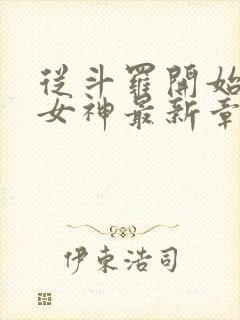 從斗羅開始
女神最新章
伊東浩司